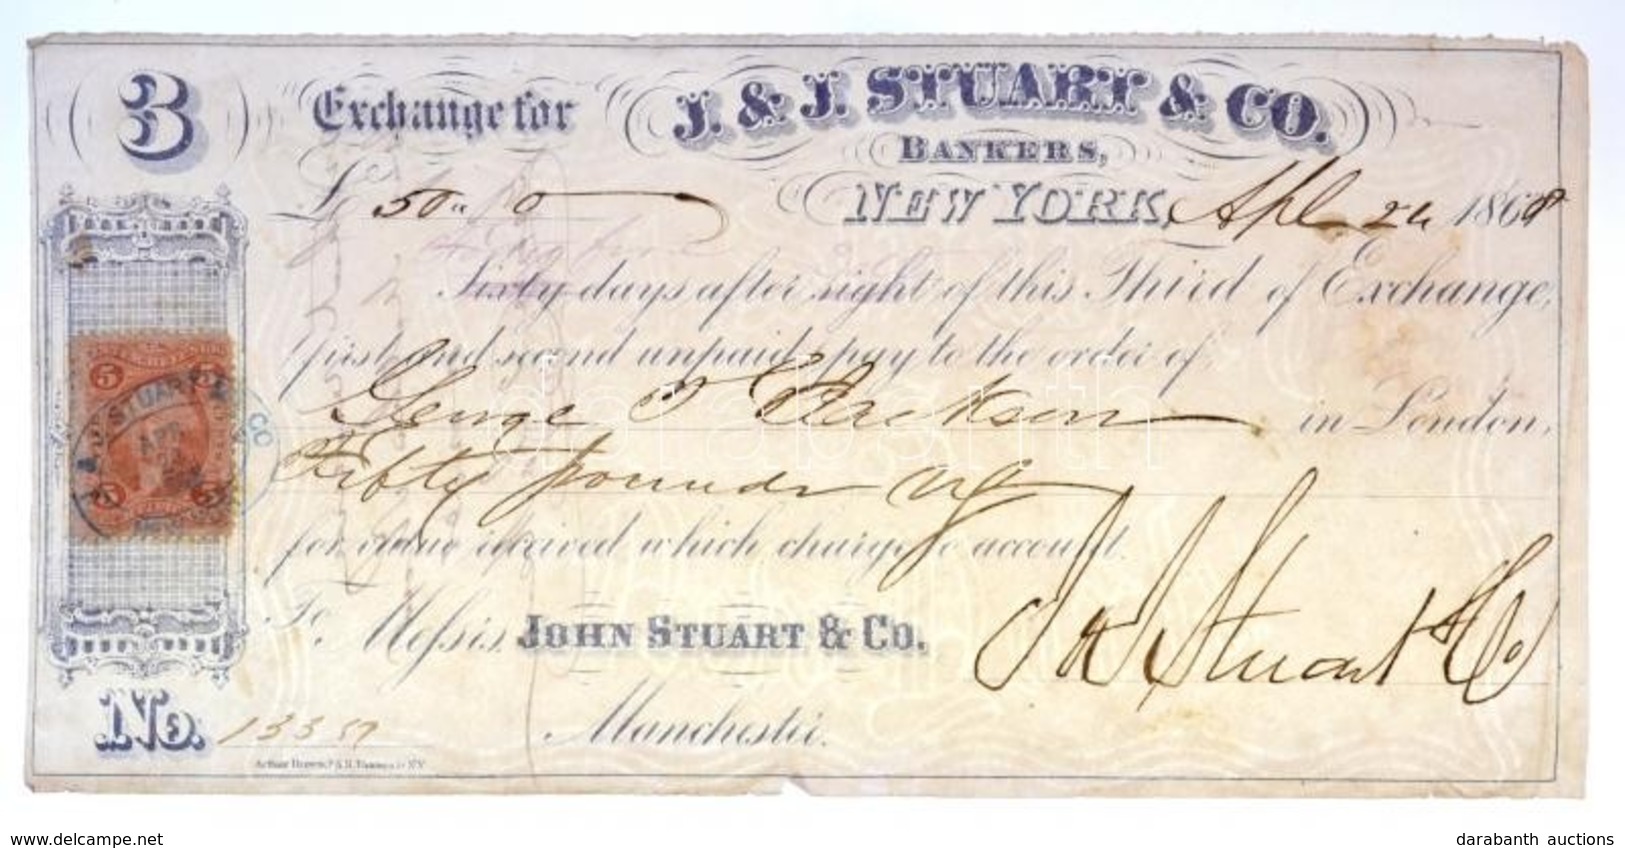 3 Exchange for J. & J. STUART & CO.
BANKERS,
£ 50 " 0 NEW YORK, Apl 24 1868
Sixty days after sight of this Third of Exchange,
first and second unpaid, pay to the order of
George Clarkson in London,
Fifty pounds stg
for value received which charge to account.
To Messrs. JOHN STUART & CO.
J & J Stuart & Co
Manchester.
No. 13357
5 5
STUART & CO
APR
5 5
darabanth
delcampe.net
darabanth auctions